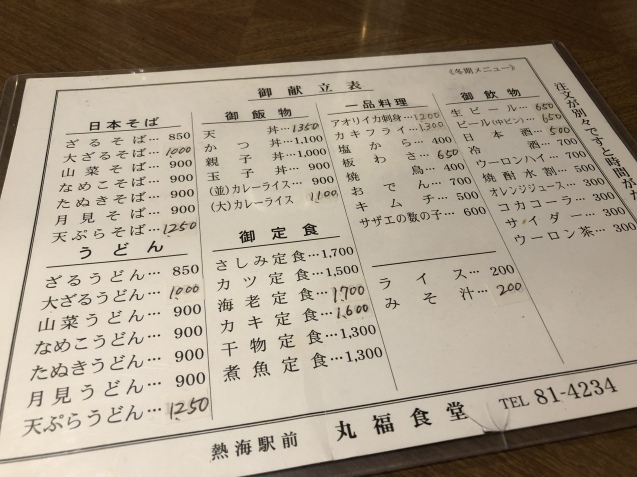 御献立表
《冬期メニュー》
日本そば
ざるそば…850
大ざるそば…1000
山菜そば…900
なめこそば…900
たぬきそば…900
月見そば…900
天ぷらそば…1250
うどん
ざるうどん…850
大ざるうどん…1000
山菜うどん…900
なめこうどん…900
たぬきうどん…900
月見うどん…900
天ぷらうどん…1250
御飯物
天丼…1350
かつ丼…1,100
親子丼…1,000
玉子丼…900
(並)カレーライス…900
(大)カレーライス 1100
御定食
さしみ定食…1,700
カツ定食…1,500
海老定食…1700
カキ定食…1,600
干物定食…1,300
煮魚定食…1,300
一品料理
アオリイカ刺身…1200
カキフライ…1300
塩から…400
板わさ…650
焼鳥…400
おでん…700
キムチ…500
サザエの数の子…600
ライス…200
みそ汁…200
御飲物
生ビール…650
ビール(中ビン)…650
日本酒…500
冷酒…700
ウーロンハイ…700
焼酎水割…500
オレンジジュース…300
コカコーラ…300
サイダー…300
ウーロン茶…300
注文が別々ですと時間がた
熱海駅前 丸福食堂 TEL 81-4234